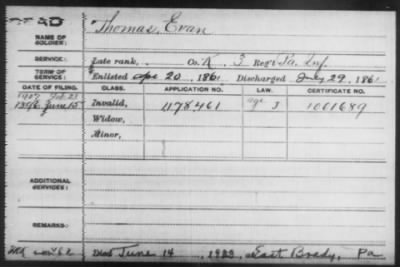 DEAD
NAME OF SOLDIER: Thomas, Evan
SERVICE: Late rank, . Co. K. 3 Reg't Pa. Inf.
TERM OF SERVICE: Enlisted Apr 20, 1861 Discharged July 29, 1861
DATE OF FILING. CLASS. APPLICATION NO. LAW. CERTIFICATE NO.
1907 Feb. 23
June 15 Invalid, 1178461 age 3 1061689
Widow,
Minor,
ADDITIONAL SERVICES:
REMARKS:
Died June 14, 1923, East Brady, Pa